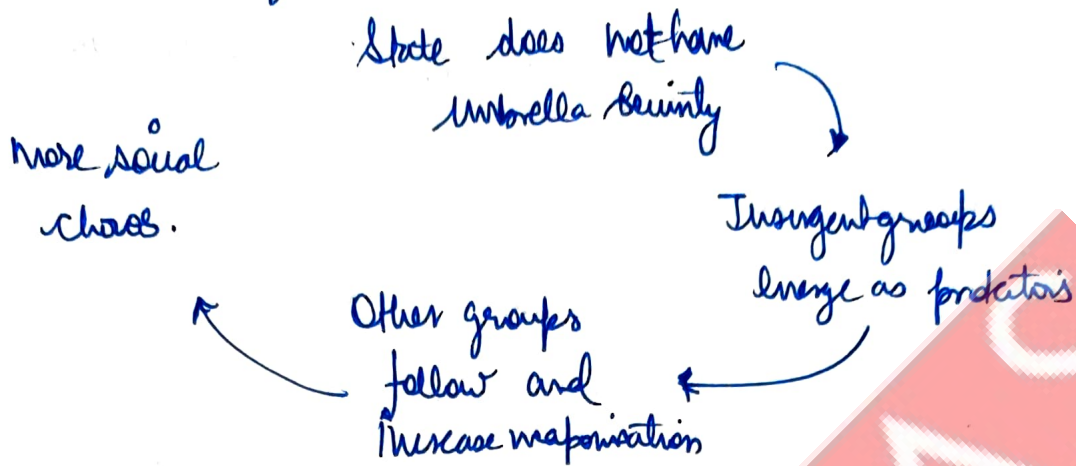 State does not have
umbrella security
Insurgent groups
emerge as predators
Other groups
follow and
increase weaponisation
more social
chaos.